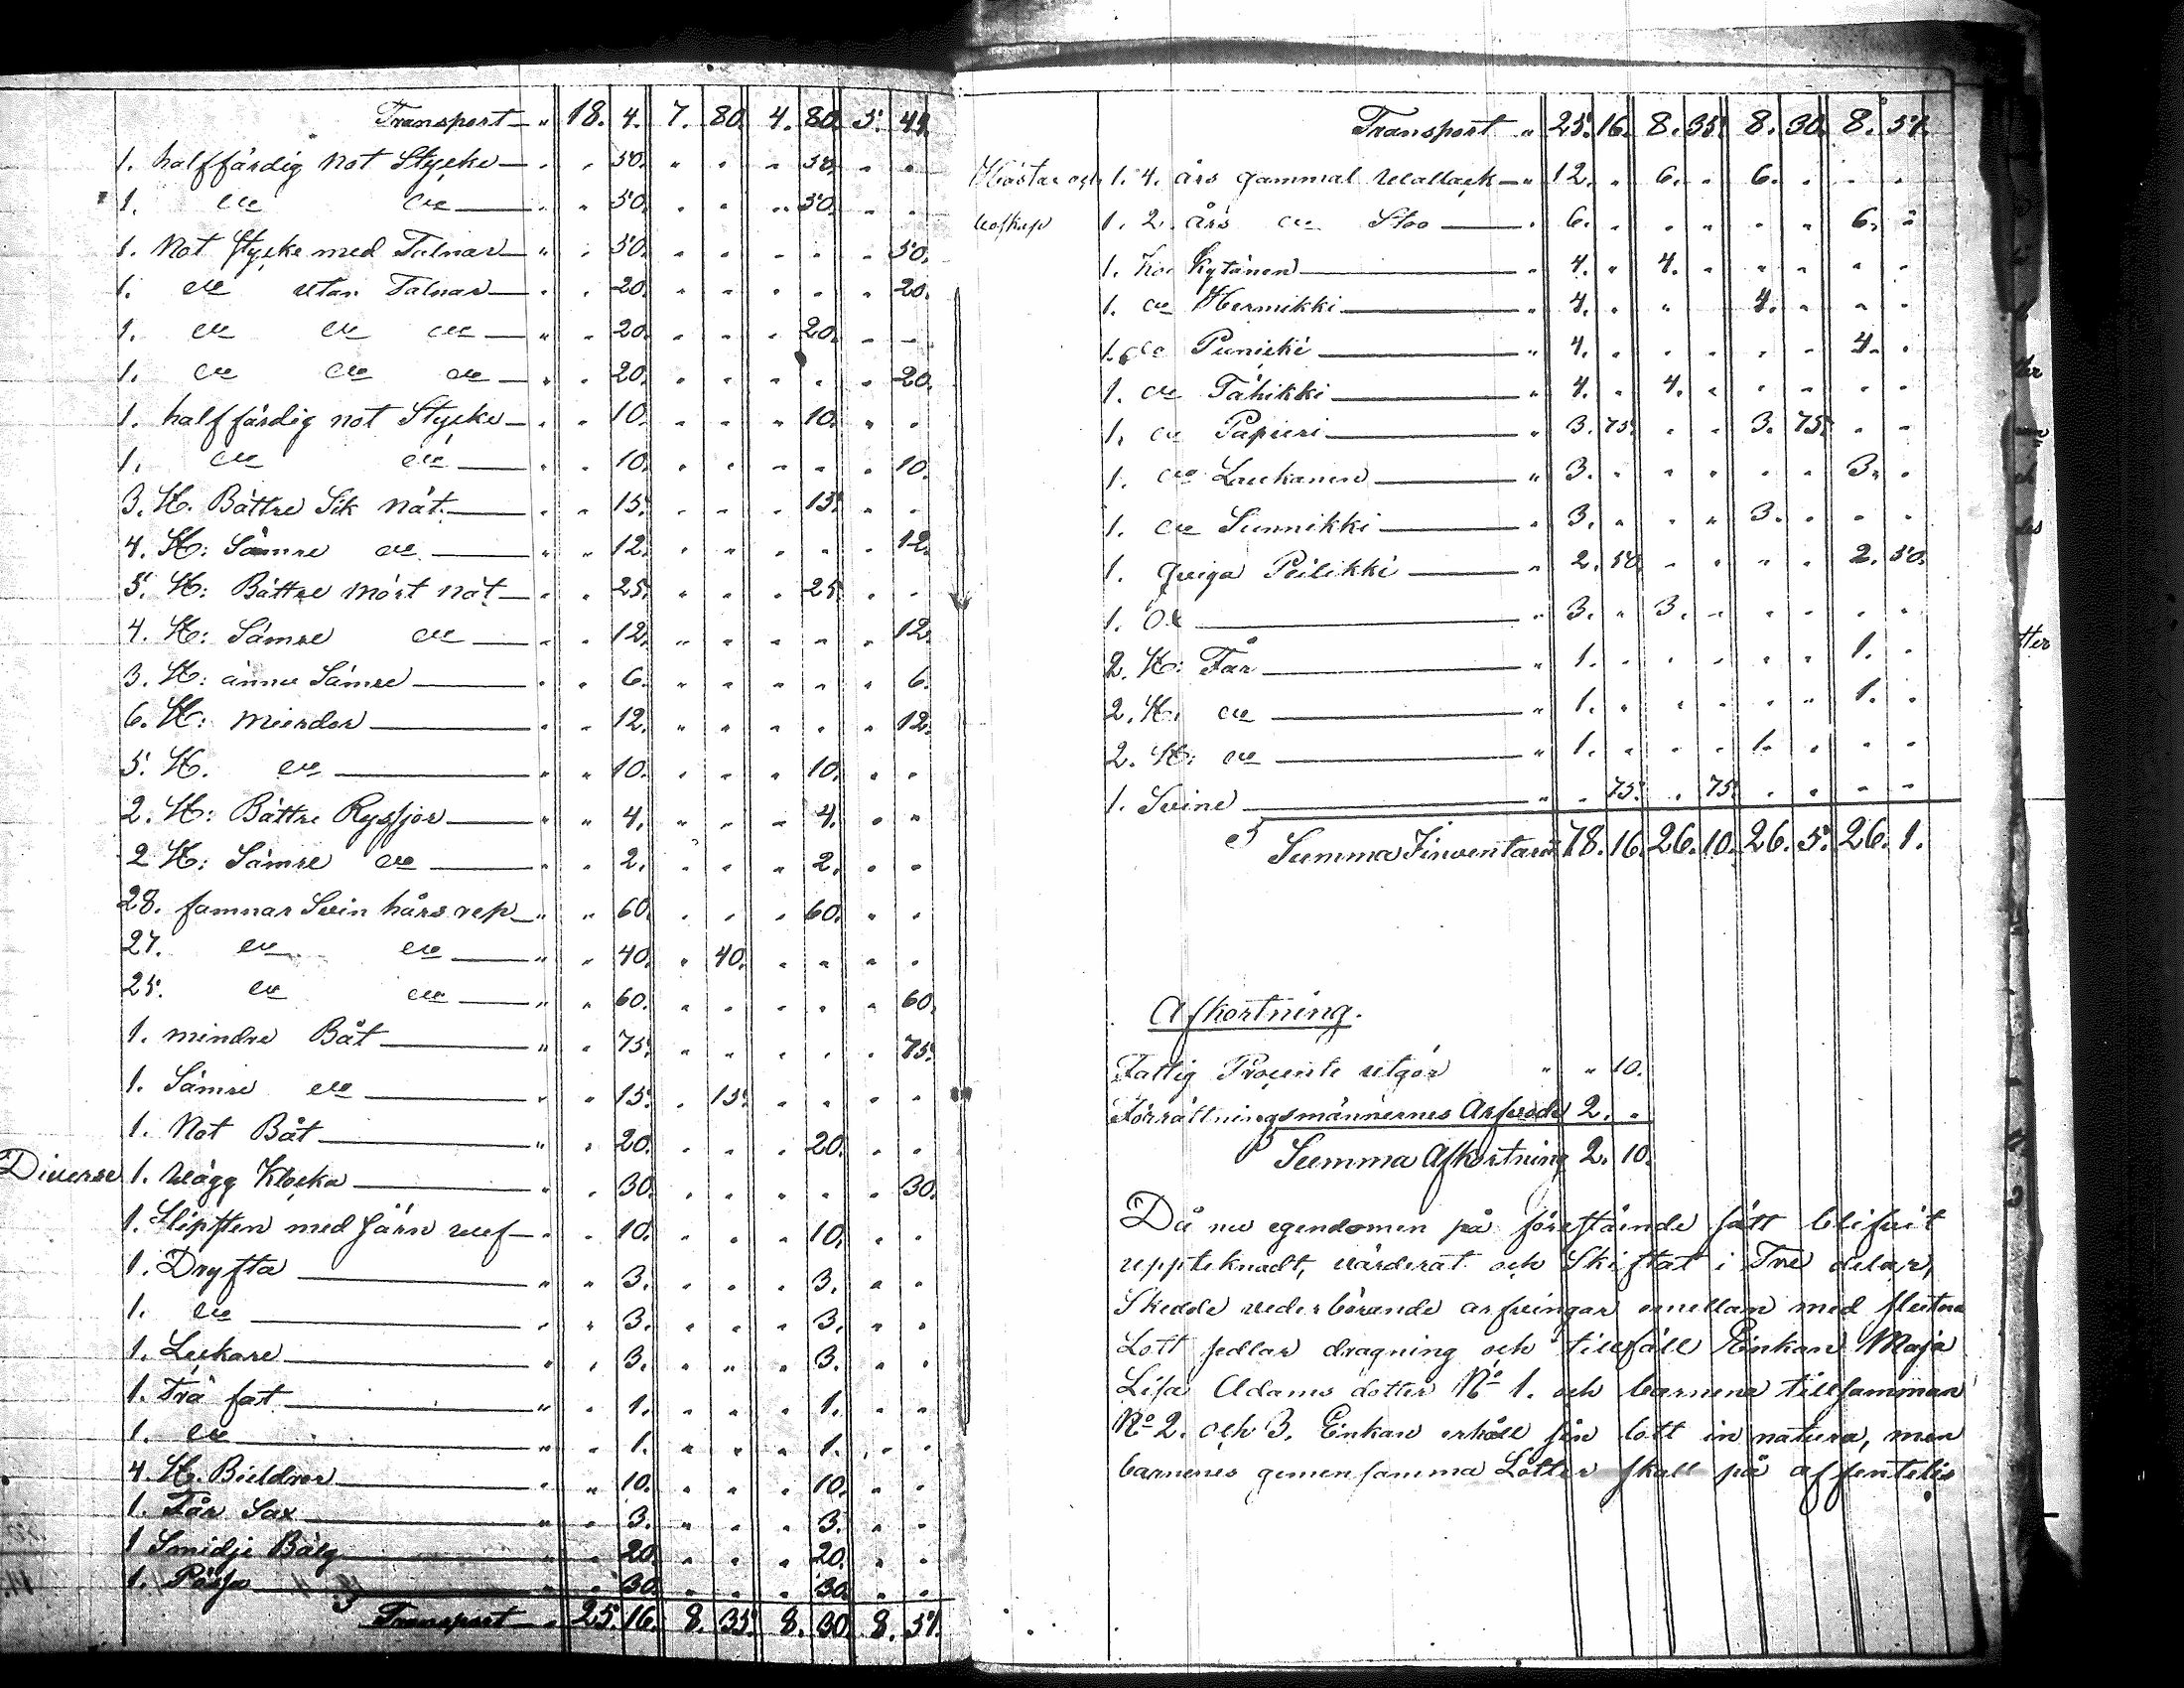 Transport " 18. 4. 7. 80. 4. 80. 5. 44.
1. halffärdig not Stycke " " 50. " " " 50. " "
1. do do " " 50. " " " 50. " "
1. Not Stycke med Talnar " " 50. " " " " " 50.
1. do utan Talnar " " 20. " " " " " 20.
1. do do do " " 20. " " " 20. " "
1. do do do " " 20. " " " " " 20.
1. halffärdig not Stycke " " 10. " " " 10. " "
1. do do " " 10. " " " " " 10.
3. St. Bättre Sik nät " " 15. " " " 15. " "
4. St: Sämre do " " 12. " " " " " 12.
5. St: Bättre Mört nät " " 25. " " " 25. " "
4. St: Sämre do " " 12. " " " " " 12.
3. St: ännu Sämre " " 6. " " " " " 6.
6. St: Mierdor " " 12. " " " " " 12.
5. St. do " " 10. " " " 10. " "
2. St: Bättre Ryssjor " " 4. " " " 4. " "
2 St: Sämre do " " 2. " " " 2. " "
28. famnar Svin hårs rep " " 60. " " " 60. " "
27. do do " " 40. " 40. " " " "
25. do do " " 60. " " " " " 60.
1. mindre Båt " " 75. " " " " " 75.
1. Sämre do " " 15. " 15. " " " "
1. Not Båt " " 20. " " " 20. " "
Diverse 1. Vägg Klocka " " 30. " " " " " 30.
1. Slipsten med Järn vef " " 10. " " " 10. " "
1. Dryfta " " 3. " " " 3. " "
1. do " " 3. " " " 3. " "
1. Luckare " " 3. " " " 3. " "
1. Trä fat " " 1. " " " 1. " "
1. do " " 1. " " " 1. " "
4 St. Bieldror " " 10. " " " 10. " "
1. Får Sax " " 3. " " " 3. " "
1 Smidje Bälg " " 20. " " " 20. " "
1. Påssa " " 30. " " " 30. " "
Transport " 25. 16. 8. 35. 8. 30. 8. 51.
Transport " 25. 16. 8. 35. 8. 30. 8. 51.
Hästar och 1. 4. års gammal Wallack " 12. " 6. " 6. " " "
boskap 1. 2. års do Sto " 6. " " " " " 6. "
1. Ko Kytönen " 4. " 4. " " " " "
1. do Hermikki " 4. " " 4. " " "
1. do Punicki " 4. " " " " " 4. "
1. do Tähikki " 4. " 4. " " " " "
1. do Papuri " 3. 75. " " 3. 75. " "
1. do Laukanen " 3. " " " " " 3. "
1. do Sunnikki " 3. " " " 3. " " "
1. qviga Peilikki " 2. 50 " " " " 2. 50.
1. Ox " 3. " 3. " " " " "
2. St: Får " 1. " " " " " 1. "
2. St. do " 1. " " " " " 1. "
2. St: do " 1. " " " 1. " " "
1. Svine " " 75. " 75. " " " "
Summa Inventarii 78. 16. 26. 10. 26. 5. 26. 1.
Afkortning.
Fattig Procente utgör " " 10.
Förrättningsmännernes Arfvode 2. "
Summa Afkortning 2. 10.
Då nu egendomen på förestående sätt blifvit
uppteknadt, värderat och Skiftat i Tre delar,
Skedde vederbörande arfvingar emellan med slutna
Lott sedlar dragning och tillföll Enkan Maja
Lisa Adams dotter No 1. och barnena tillsamman
No 2. och 3. Enkan erhöll sin lott in natura, men
barnenes gemensamma Lotter skall på offentelig